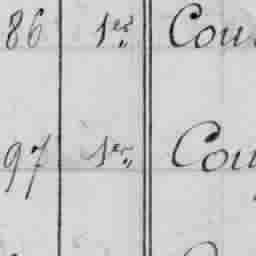 86 1er Cou
97 1er Cou